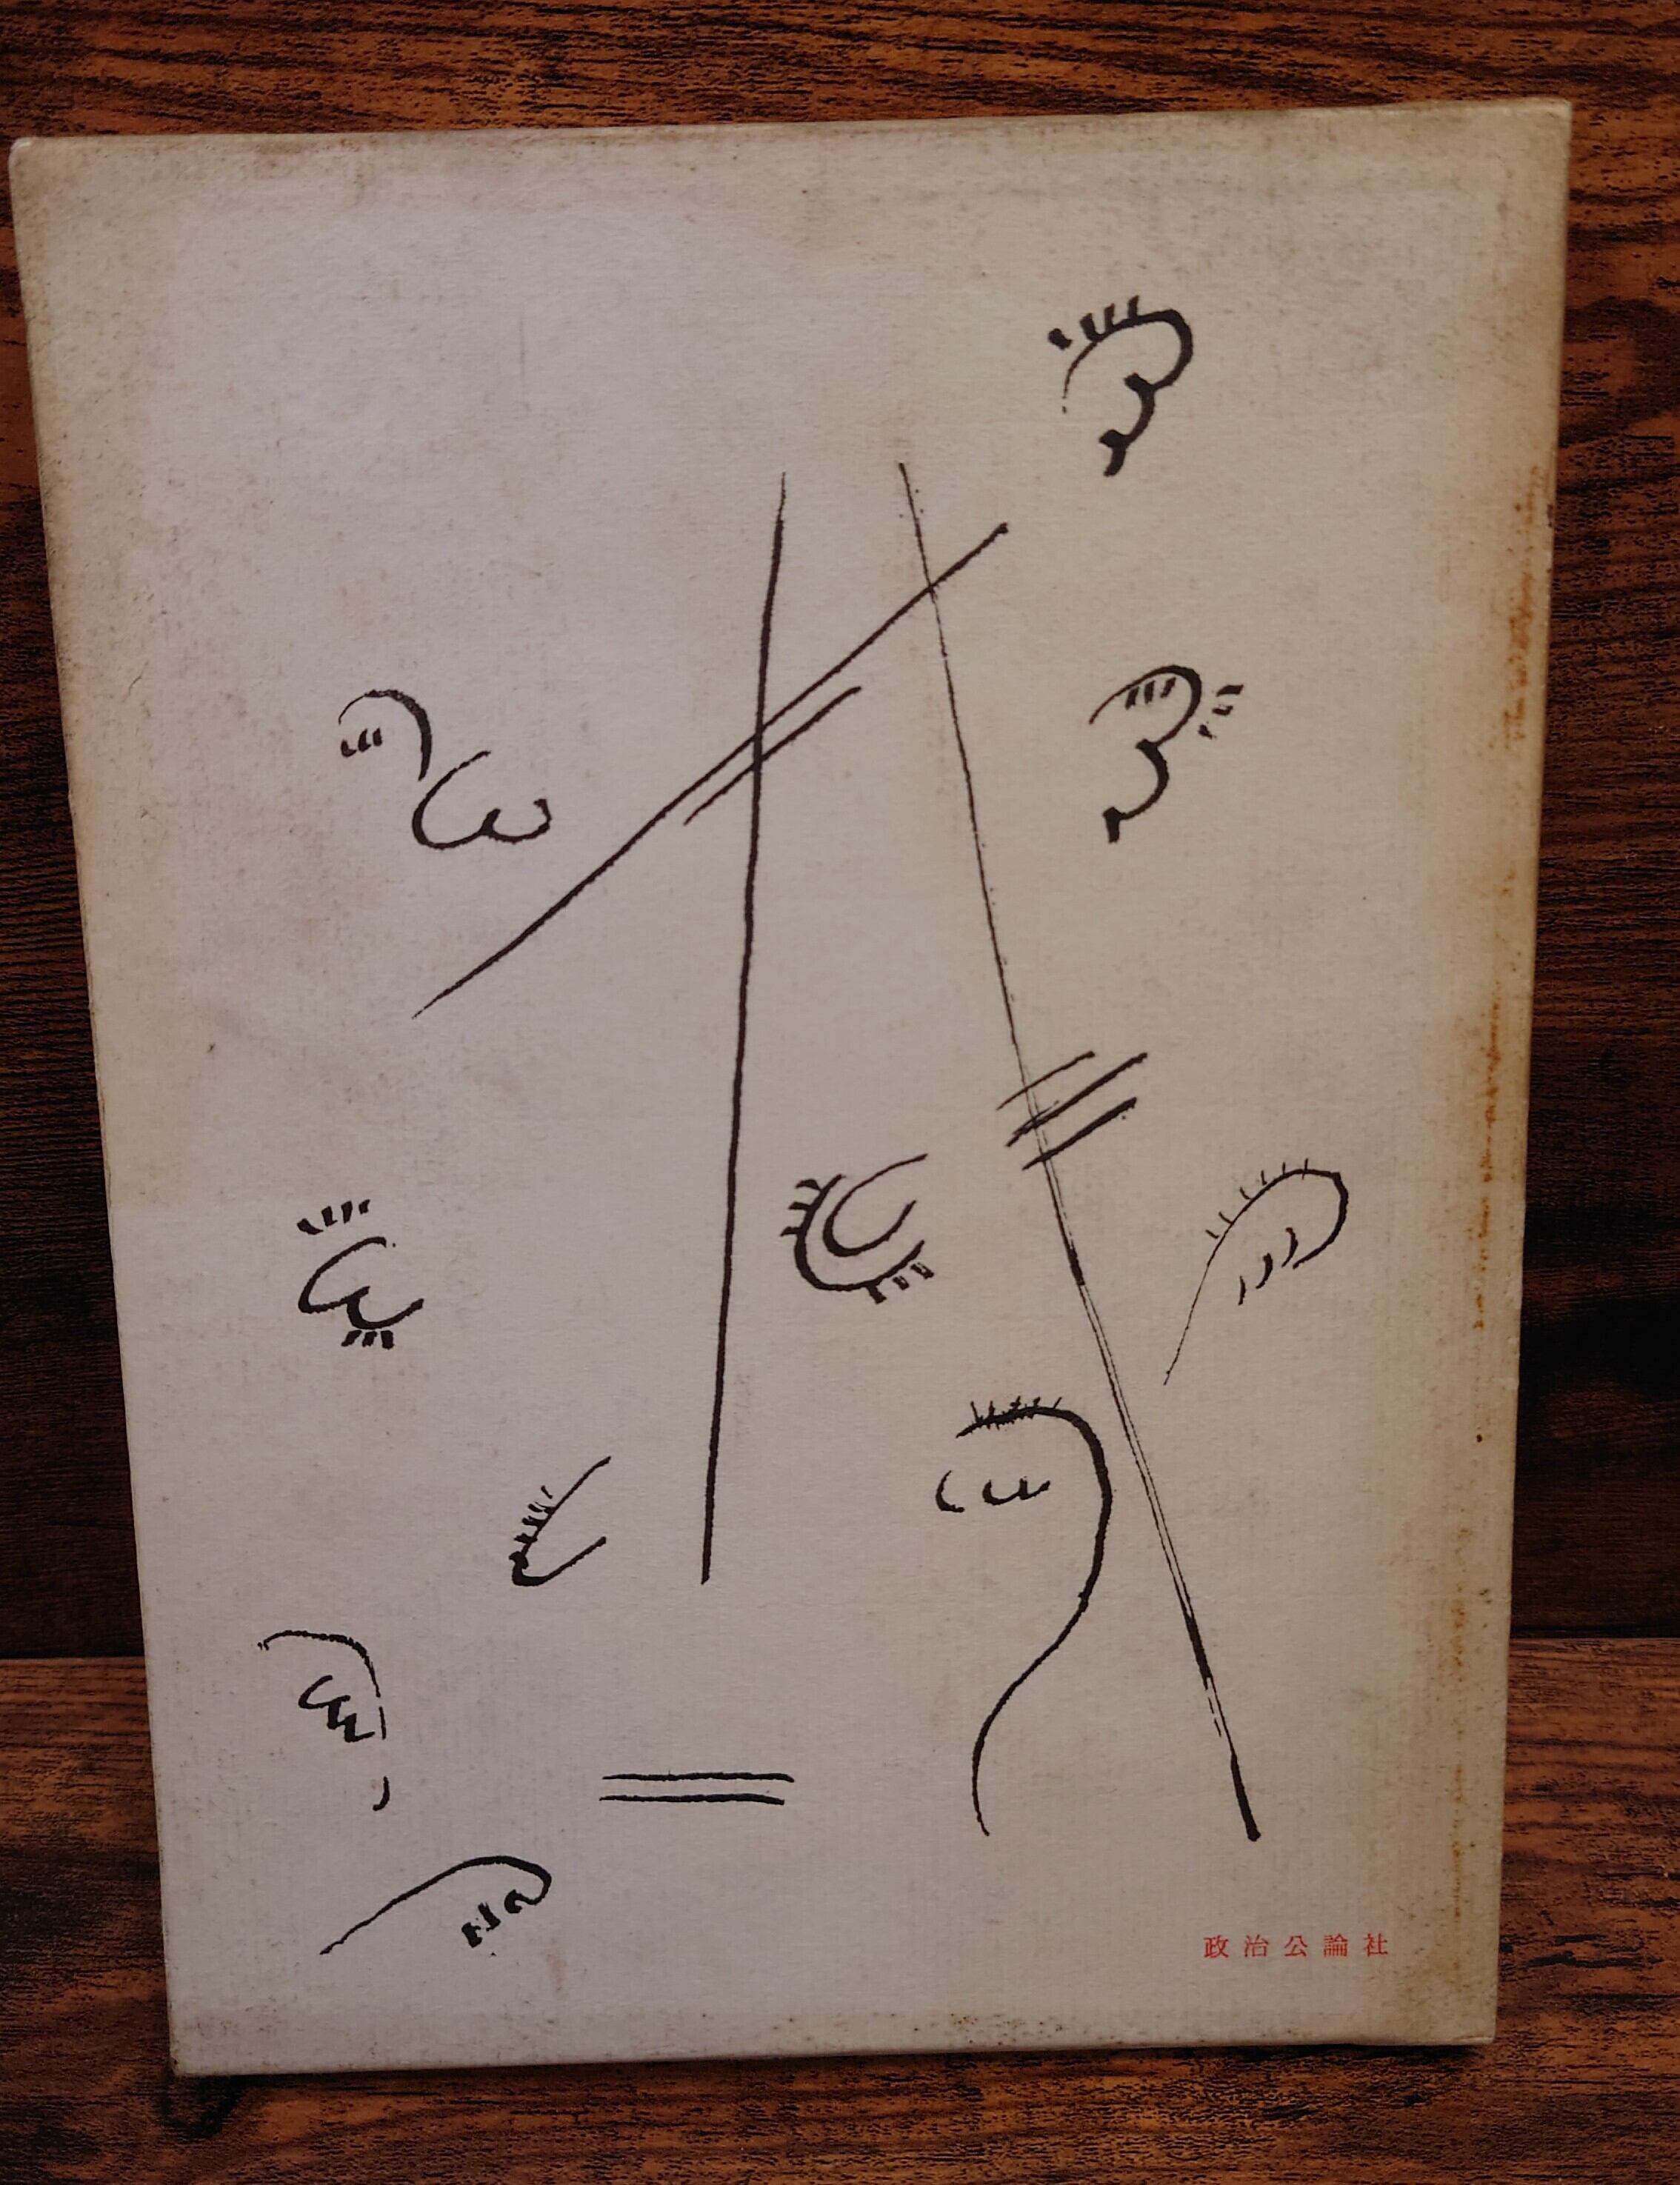 政治公論社